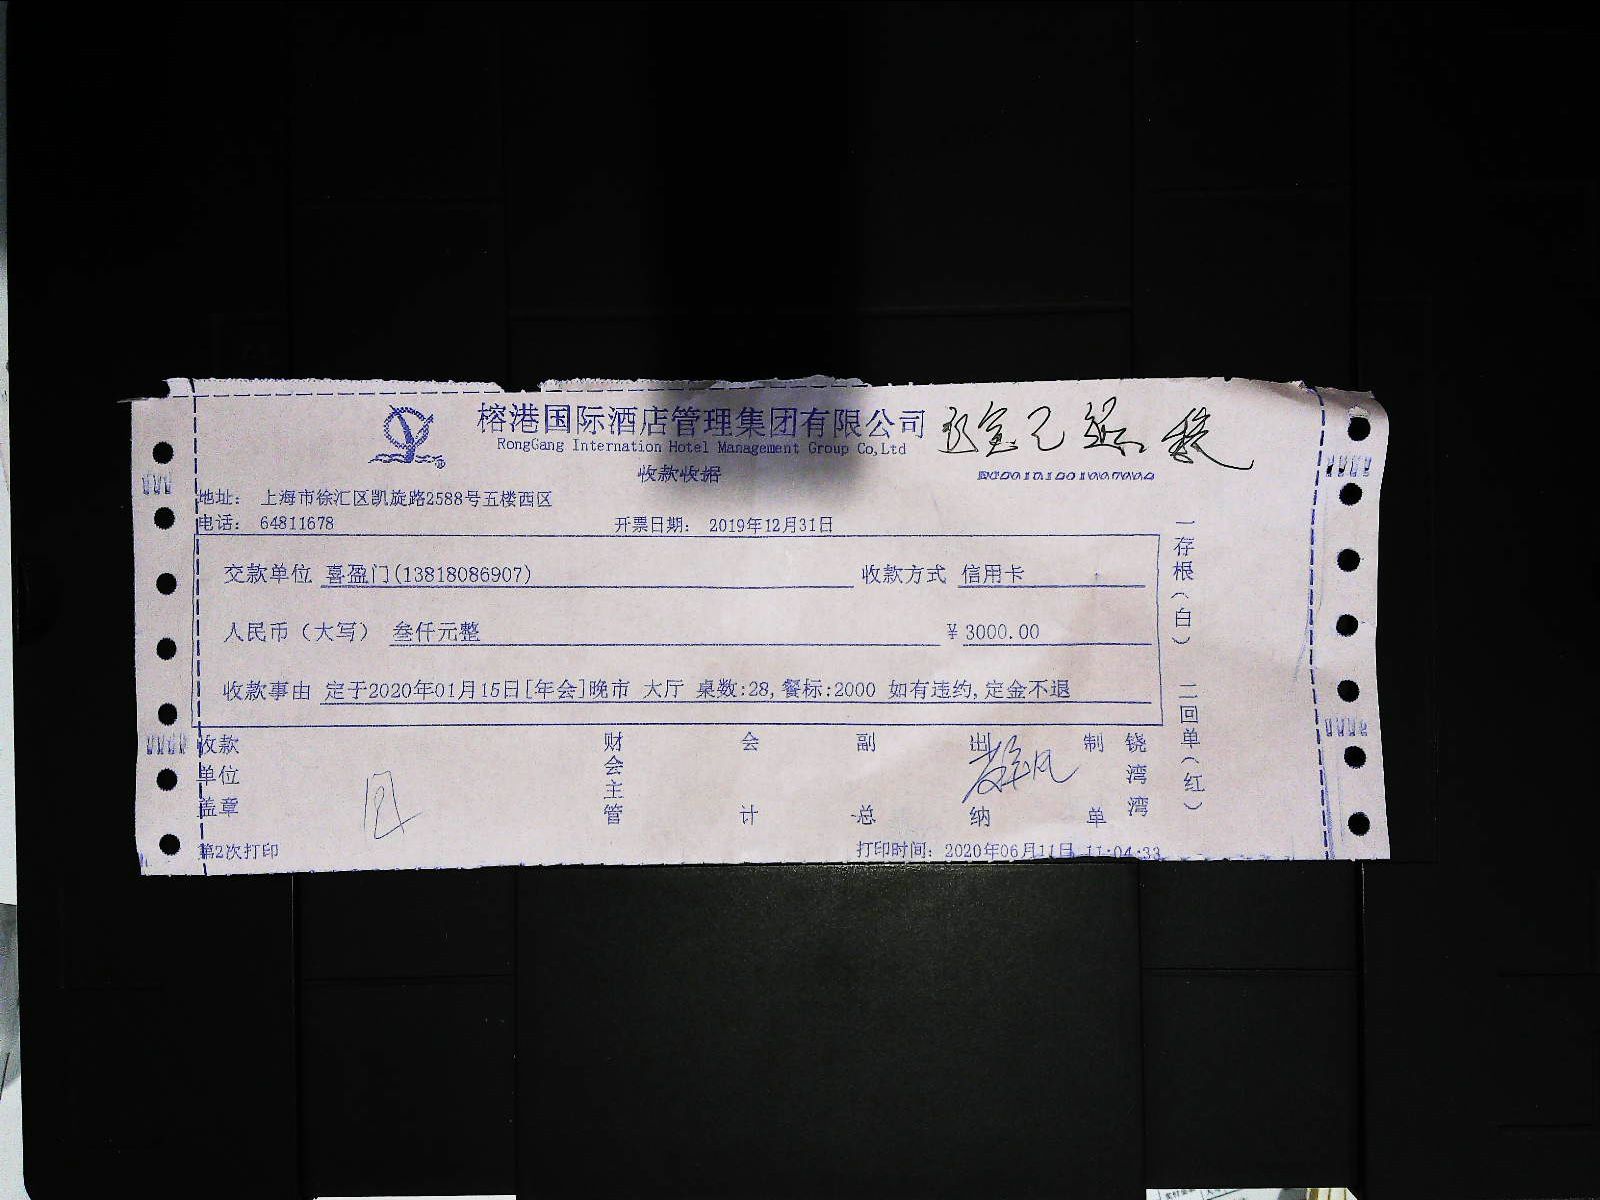 榕港国际酒店管理集团有限公司
RongGang International Hotel Management Group Co,Ltd
收款收据
地址： 上海市徐汇区凯旋路2588号五楼西区
电话： 64811678
开票日期： 2019年12月31日
交款单位 喜盈门(13818086907)
收款方式 信用卡
人民币（大写） 叁仟元整
¥ 3000.00
收款事由 定于2020年01月15日[年会]晚市 大厅 桌数:28,餐标:2000 如有违约,定金不退
一存根（白）
二回单（红）
收款单位盖章
财会主管
会计
副总
出纳
制单
饶湾湾
第2次打印
打印时间： 2020年06月11日 11:04:33